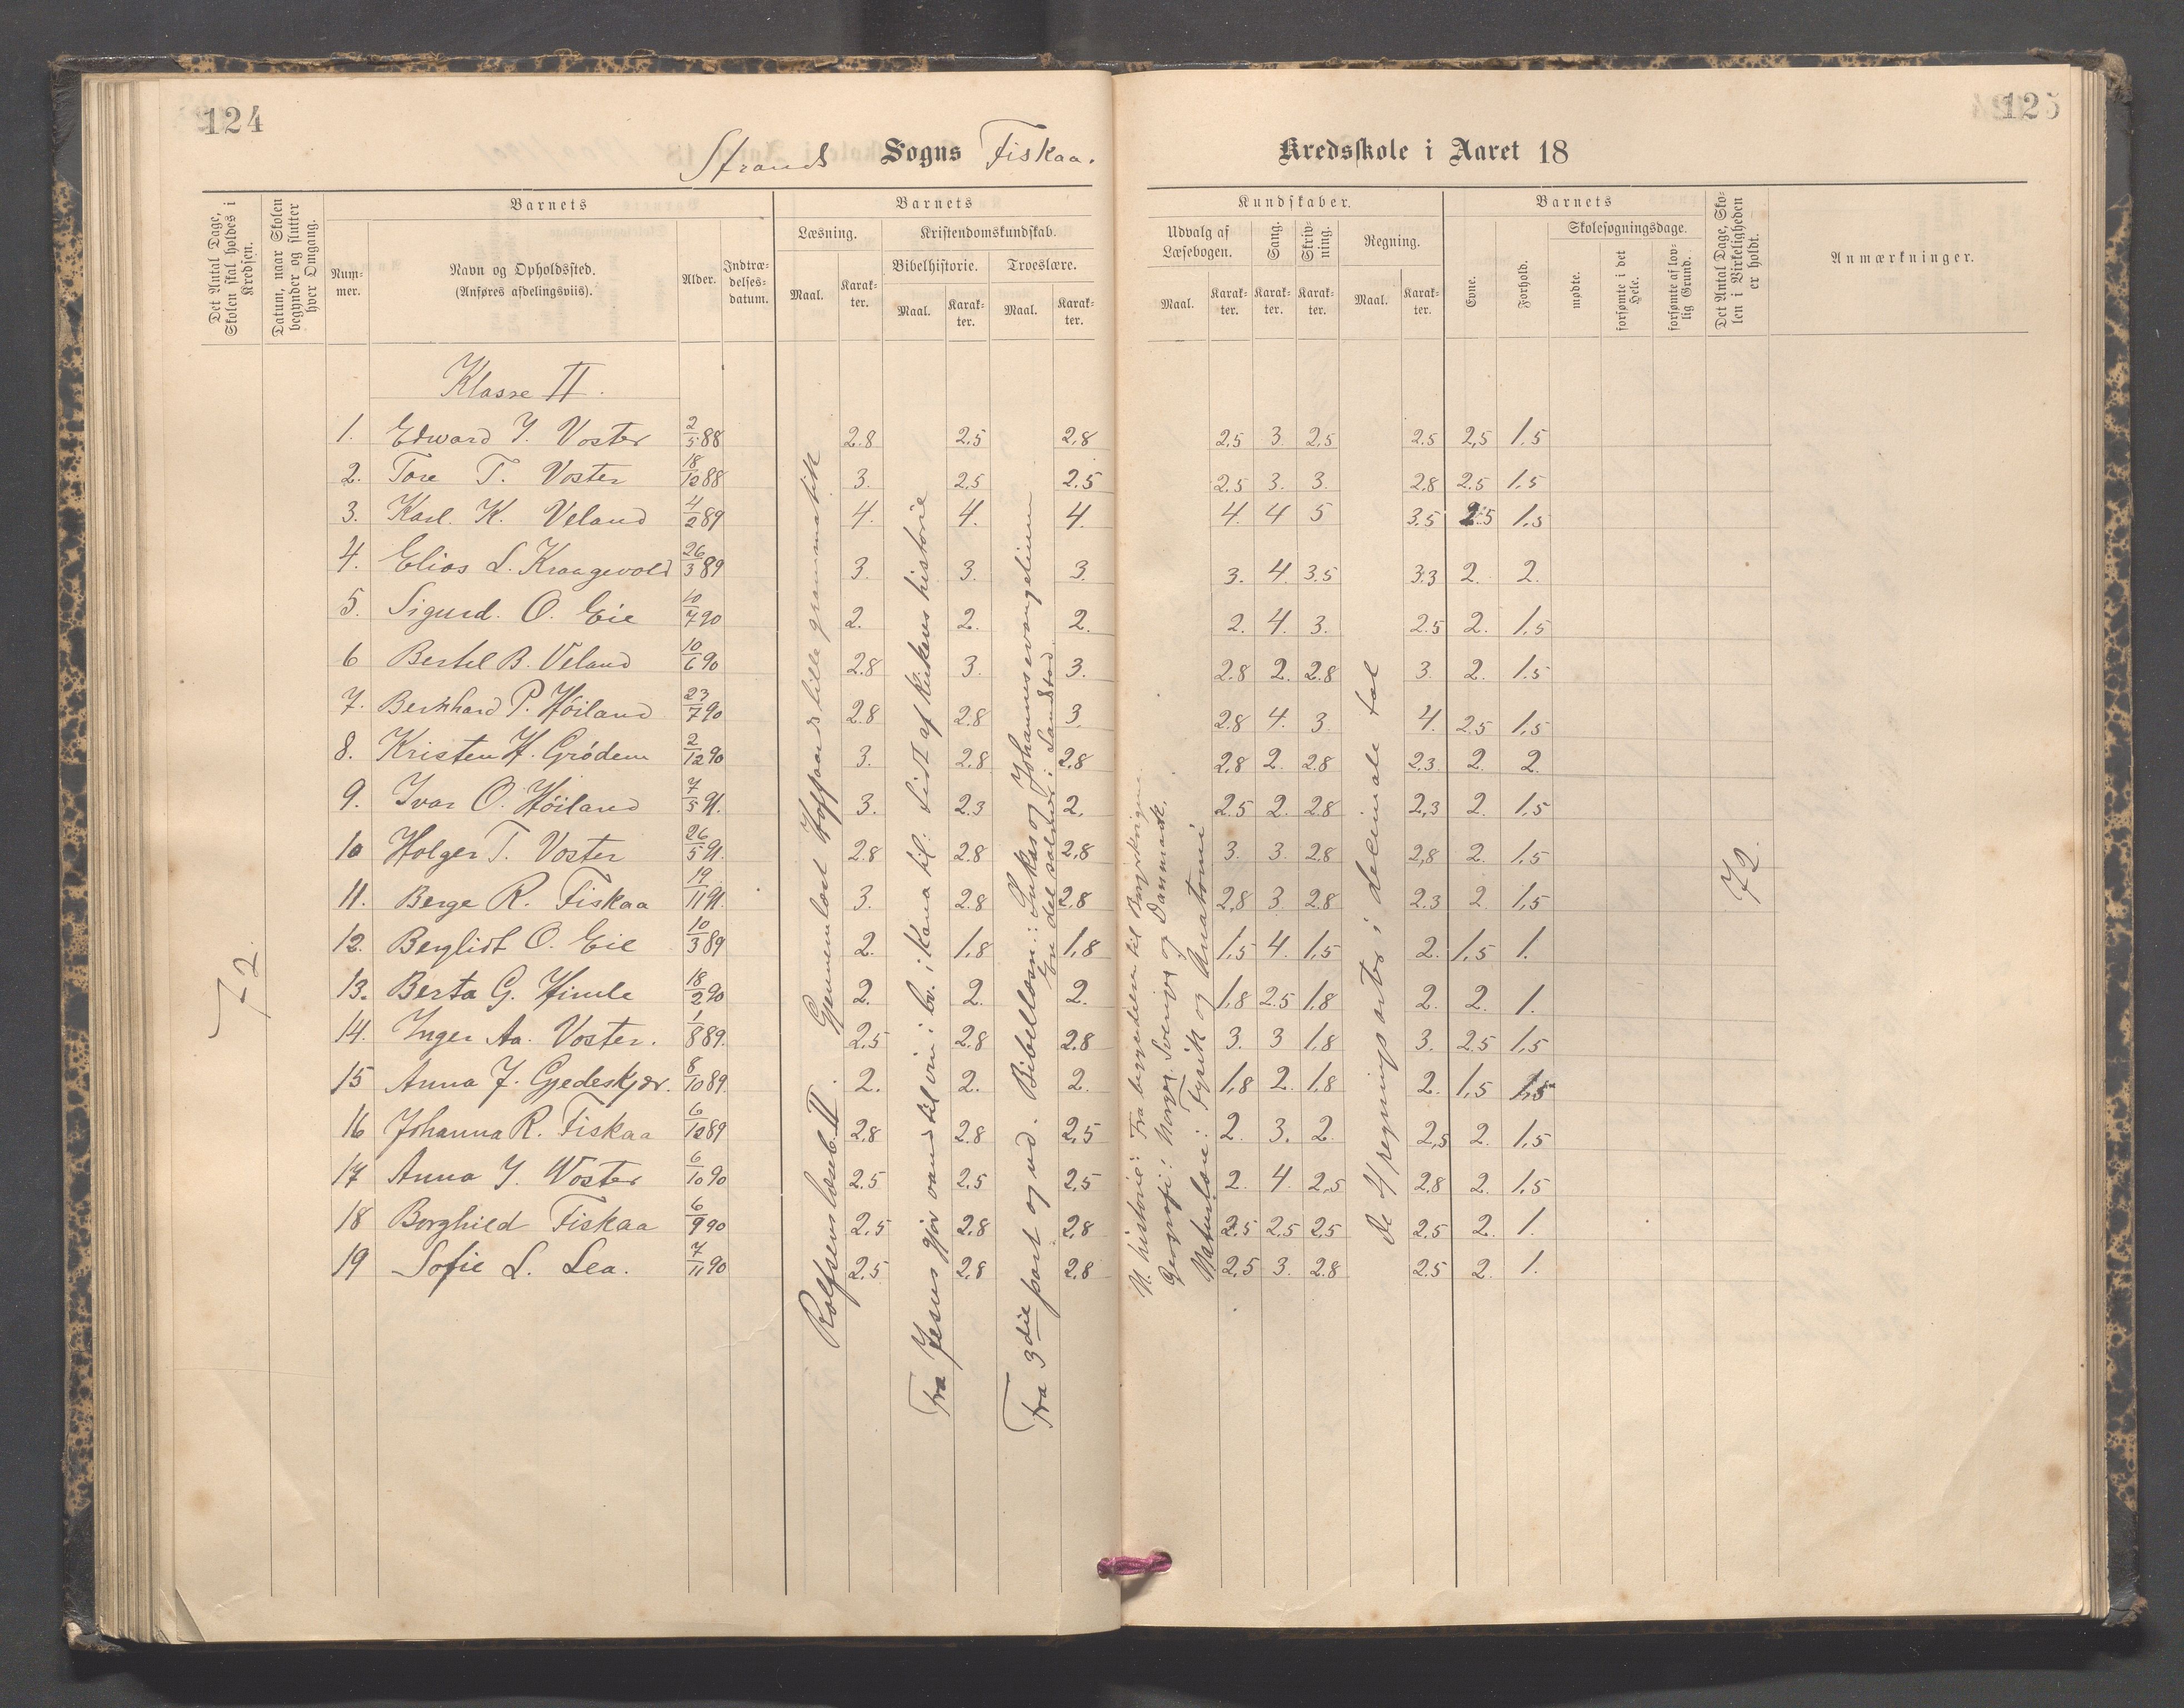 124
125
Strands Sogns Fiskaa.
Kredsskole i Aaret 18
Det Antal Dage, Skolen skal holdes i Kredsen.
Datum, naar Skolen begynder og slutter hver Omgang.
Barnets
Num-mer.
Navn og Opholdssted.
(Anføres afdelingsviis).
Alder.
Indtræ-delses-datum.
Barnets
Læsning.
Maal.
Karak-ter.
Kristendomskundskab.
Bibelhistorie.
Maal.
Karak-ter.
Troeslære.
Maal.
Karak-ter.
Kundskaber.
Udvalg af Læsebogen.
Maal.
Karak-ter.
Sang.
Karak-ter.
Skriv-ning.
Karak-ter.
Regning.
Maal.
Karak-ter.
Barnets
Evne.
Forhold.
Skolesøgningsdage.
mødte.
forsømte i det Hele.
forsømte af lov-lig Grund.
Det Antal Dage, Sko-len i Virkeligheden er holdt.
Anmærkninger.
Klasse II.
1. Edward J. Voster 2/5 88 2.8 2.5 2.8 2.5 3. 2.5 2.5 2.5 1.5
2. Tore T. Voster 18/12 88 3. 2.5 2.5 2.5 3. 3. 2.8 2.5 1.5
3. Karl. K. Veland 4/2 89 4. 4. 4. 4. 4 5 3.5 2.5 1.5
4. Elias L. Kraagevold 26/3 89 3. 3. 3. 3. 4. 3.5 3.3 2. 2.
5. Sigurd. O. Eie 10/7 90 2. 2. 2. 2. 4. 3. 2.5 2. 1.5
6 Bertel B. Veland 10/6 90 2.8 3. 3. 2.8 2. 2.8 3. 2. 1.5
7. Bernhard P. Høiland 23/7 90 2.8 2.8 3. 2.8 4. 3. 4. 2.5 1.5
8. Kristen H. Grødem 2/12 90 3. 2.8 2.8 2.8 2. 2.8 2.3 2. 2.
9. Ivar O. Høiland 7/5 91. 3. 2.3 2. 2.5 2. 2.8 2.3 2. 1.5
10 Holger T. Voster 26/5 91. 2.8 2.8 2.8 3. 3. 2.8 2.8 2. 1.5
11. Berge R. Fiskaa 19/11 91. 3. 2.8 2.8 2.8 3 2.8 2.3 2. 1.5
12. Berglidt O. Eie 10/3 89 2. 1.8 1.8 1.5 4. 1.5 2. 1.5 1.
13. Berta G. Himle 18/2 90 2. 2. 2. 1.8 2.5 1.8 2. 2. 1.
14. Inger Aa. Voster. 1/8 89. 2.5 2.8 2.8 3. 3 1.8 3. 2.5 1.5
15 Anna J. Gjedeskjær. 8/10 89 2. 2. 2. 1.8 2. 1.8 2. 1.5 1.5
16 Johanna R. Fiskaa 6/12 89 2.8 2.8 2.5 2. 3. 2. 2.5 2. 1.5
17 Anna J. Woster 6/10 90 2.5 2.5 2.5 2. 4. 2.5 2.8 2. 1.5
18 Borghild Fiskaa 6/9 90 2.5 2.8 2.8 2.5 2.5 2.5 2.5 2. 1.
19 Sofie L. Lea. 7/11 90 2.5 2.8 2.8 2.5 3. 2.8 2.5 2. 1.
72.
Rolfsens læseb. II. Gjennemløst Hoffgaards lille grammatik
Fra Jesus gjør vand til vin i br. i Kana til: Lidt af kirkens historie
Fra 3die part og ud. Bibellæsn.: Lukas og Johannes evangelium
En del salmer i Landstad
N. historie: Fra begyndelsen til Borgerkrigene.
Geografi: Norge, Sverige og Danmark.
Naturlære: Fysik og Anatomi
De 4 regningsarter i decimale tal
72.